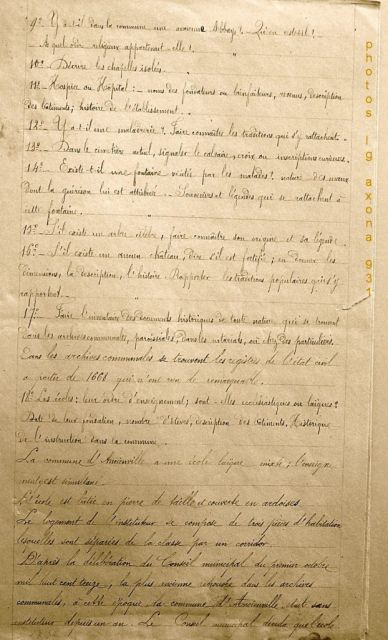 9º. Y a-t-il dans la commune une ancienne Abbaye? - Qu'en est-il? -
- A quel ordre religieux appartenait-elle? -
10º - Décrire les chapelles isolées. -
11º - Hospice ou Hôpital: - noms des fondateurs ou bienfaiteurs, revenus, description
des bâtiments; histoire de l'établissement. -
12º - Y a-t-il une maladrerie? Faire connaître les traditions qui s'y rattachent. -
13º - Dans le cimetière actuel, signaler le calvaire, croix ou inscriptions curieuses.
14º - Existe-t-il une fontaine visitée par les malades? nature des maux
dont la guérison lui est attribuée. - Souvenirs et légendes qui se rattachent à
cette fontaine. -
15º - S'il existe un arbre célèbre, faire connaître son origine et sa légende.
16º - S'il existe un ancien château, dire s'il est fortifié; en donner les
dimensions, la description, l'histoire. Rapporter les traditions populaires qui s'y
rapportent. -
17º - Faire l'inventaire des documents historiques de toute nature qui se trouvent
dans les archives communales, paroissiales, dans les notariats, ou chez des particuliers.
Dans les archives communales se trouvent les registres de l'état civil
à partir de 1668 qui n'ont rien de remarquable.
18º Les écoles: leur ordre d'enseignement; sont-elles ecclésiastiques ou laïques?
Date de leur fondation, nombre d'élèves, description des bâtiments. Historique
de l'instruction dans la commune. -
La commune d' a une école laïque mixte; l'enseigne
ment est simultané.
L'école est bâtie en pierre de taille et couverte en ardoises.
Le logement de l'instituteur se compose de trois pièces d'habitation
lesquelles sont séparées de la classe par un corridor.
D'après la délibération du Conseil municipal du premier octobre
mil huit cent treize, la plus ancienne trouvée dans les archives
communales, à cette époque, la commune d' était sans
instituteur depuis un an. Le Conseil municipal décida que l'école
photos lg axona 931